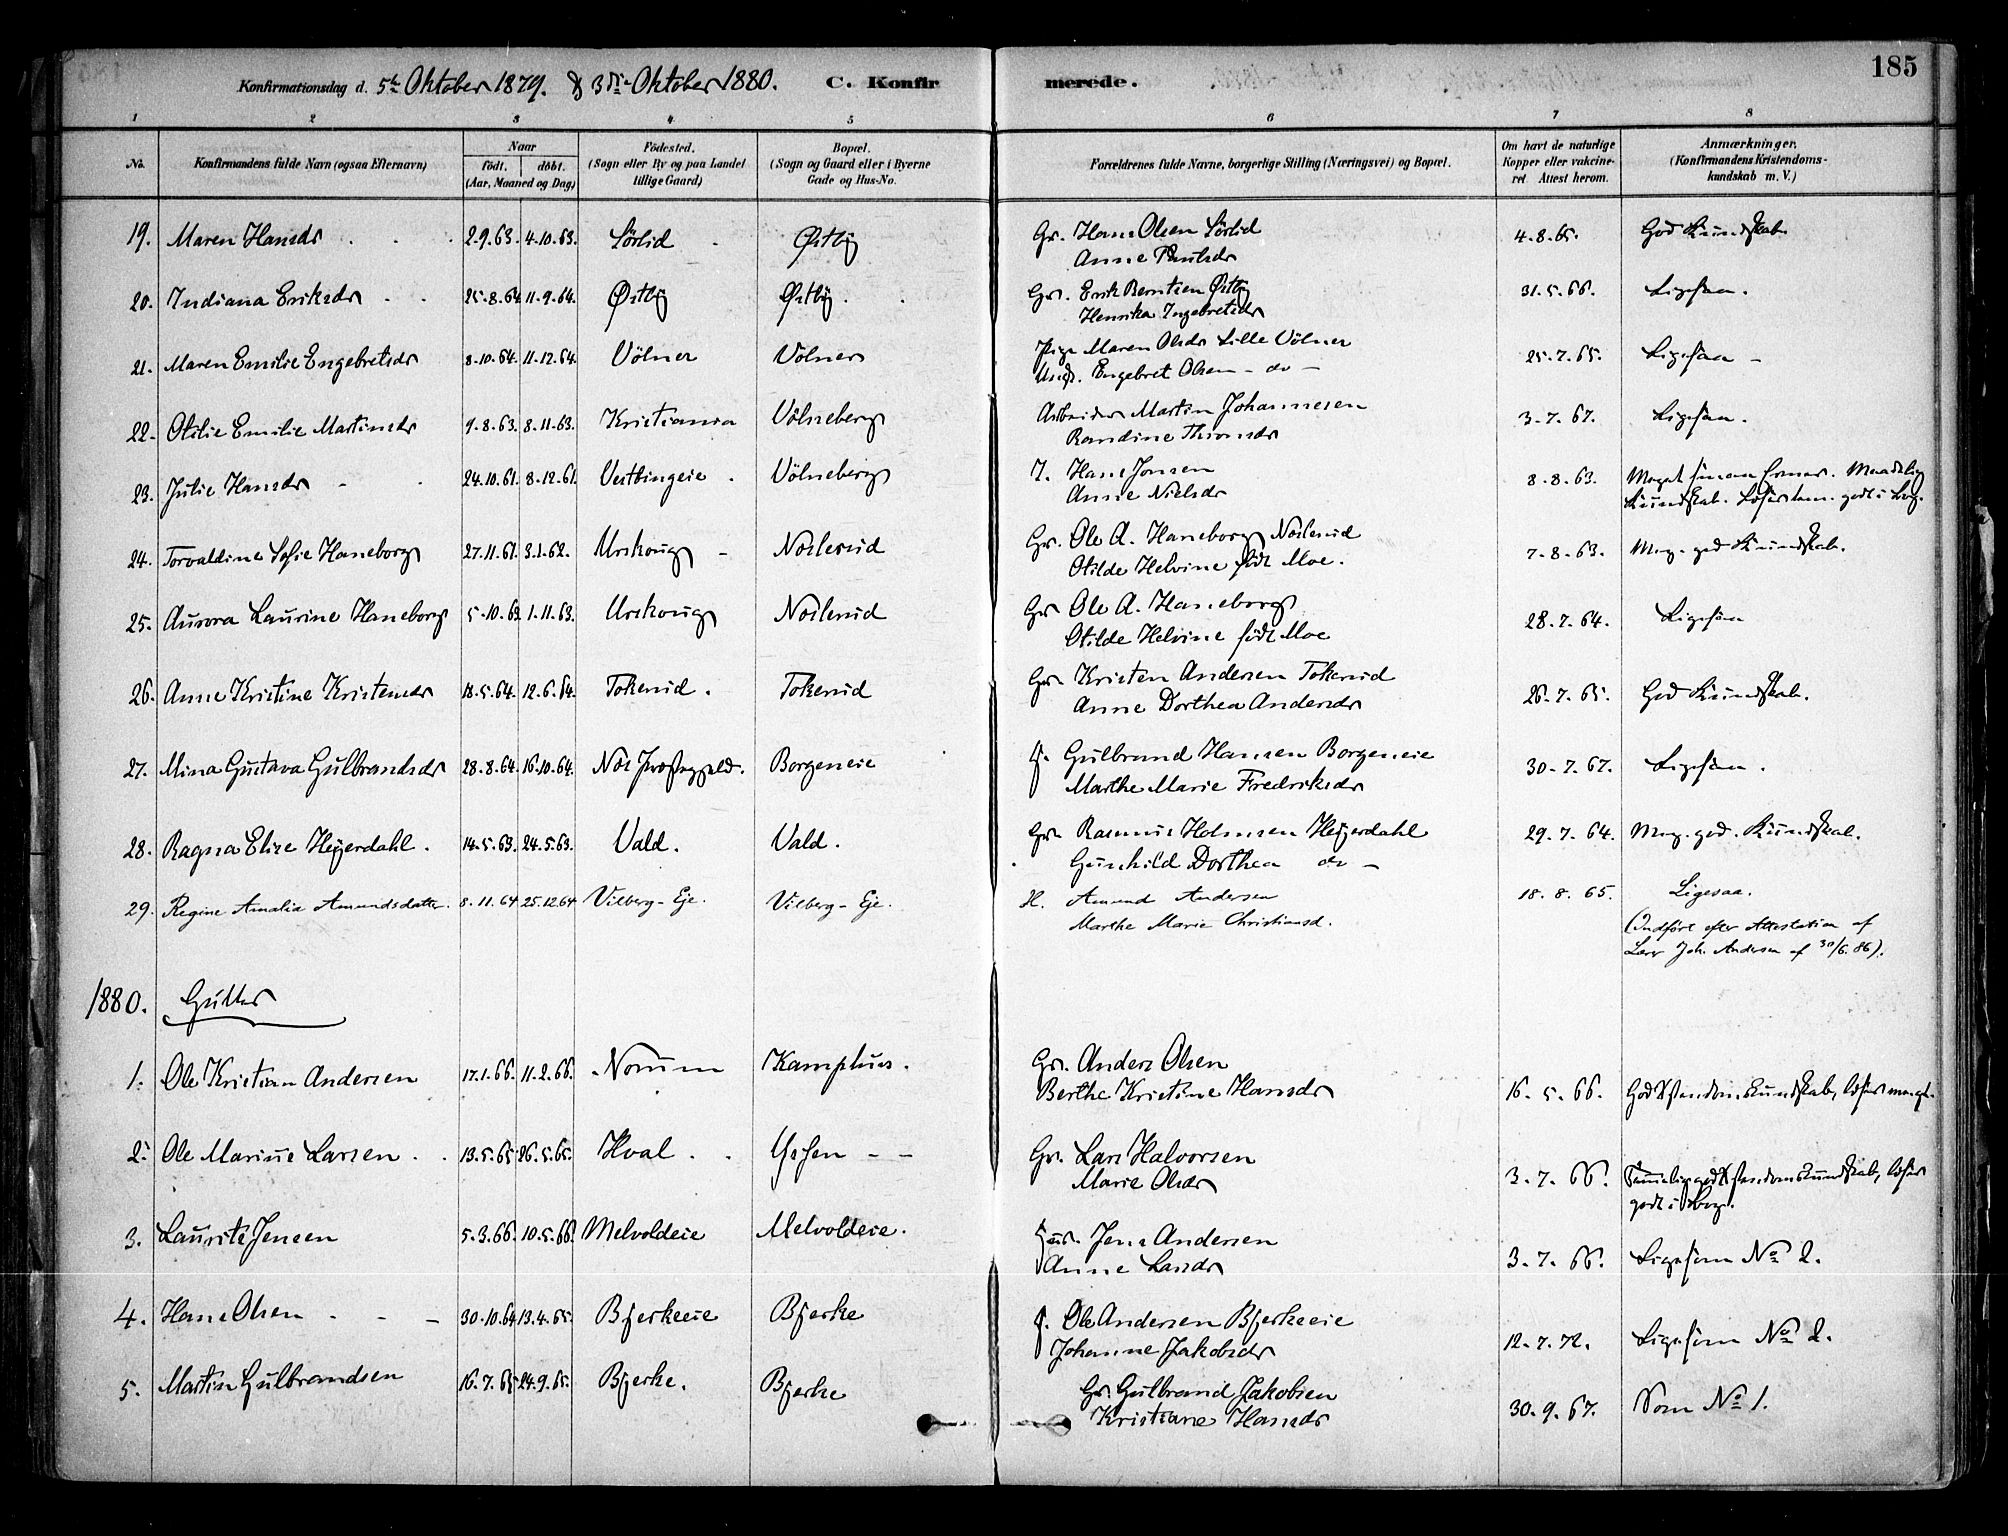 185
Konfirmationsdag d. 5te Oktober 1879. & 3die Oktober 1880. C. Konfirmerede.
1 2 3 4 5 6 7 8
No. Konfirmandens fulde Navn (ogsaa Efternavn) Naar født. døbt. (Aar, Maaned og Dag) Fødested. (Sogn eller By og paa Landet tillige Gaard) Bopæl. (Sogn og Gaard eller i Byerne Gade og Hus-No. Forældrenes fulde Navne, borgerlige Stilling (Næringsvei) og Bopæl. Om havt de naturlige Kopper eller vaccineret Attest herom. Anmærkninger. (Konfirmandens Kristendomskundskab m. V.)
19. Maren Hansdr 2.9.63. 4.10.63. Sörlid Østby Gr. Hans Olsen Sörlid 4.8.65. God Kundskab.
Anne Paulsdr
20. Indiana Eriksdr 25.8.64 11.9.64. Østby Østby. Gr. Erik Berntsen Østby 31.5.66. Ligesaa.
Henrika Ingebretsdr
21. Maren Emilie Engebretsdr 8.10.64. 11.12.64. Völner Völner Pige Maren Olsdr Lille Völner 25.7.65. Ligesaa –
Ungk. Engebret Olsen – do –
22. Otilie Emilie Martinsdr 9.8.63. 8.11.63. Kristiania Völneberg Arbeider Martin Johannesen 3.7.67. Ligesaa.
Randine Thronsdr
23. Julie Hansdr 24.10.61. 8.12.61. Vestbingeie Völneberg I. Hans Jonsen 8.8.63. Meget Maadelig
Anne Nielsdr Kundskab. godt i Bog.
24. Torvaldine Sofie Haneborg 27.11.61. 3.1.62. Urskoug – Noslerud Gr. Ole A. Haneborg Noslerud 7.8.63. Meg. god Kundskab.
Otilde Helvine født Moe.
25. Aurora Laurine Haneborg 5.10.63. 1.11.63. Urskoug Noslerud Gr Ole A. Haneborg 28.7.64. Ligesaa
Otilde Helvine født Moe
26. Anne Kristine Kristensdr 18.5.64. 12.6.64. Tokerud. Tokerud Gr Kristen Andersen Tokerud 26.7.65. God Kundskab.
Anne Dorthea Andersdr
27. Mina Gustava Gulbrandsdr 28.8.64 16.10.64. Nes Præstegjeld. Borgeneie I. Gulbrand Hansen Borgeneie 30.7.67. Ligesaa.
Marthe Marie Fredriksdr
28. Ragna Elise Heyerdahl. 14.5.63. 24.5.63. Vald. Vald. Gr. Rasmus Holmsen Heyerdahl 29.7.64. Meg. god. Kundskab.
Gunhild Dorthea do –
29. Regine Amalia Amundsdatter. 8.11.64 25.12.64 Vilberg-Eje. Vilberg-Eje. H. Amund Andersen 18.8.65. Ligesaa.
Marthe Marie Christiansd. (Indført efter Attestation af
Lærer Joh. Andersen af 30/6.86).
1880. Gutter
1. Ole Kristian Andersen 17.1.66. 11.2.66. Norum Kamphus. Gr. Anders Olsen
Berthe Kristine Hansdr 16.5.66. God Xstendomskundskab, læser
2. Ole Marius Larsen 13.5.65 26.5.65. Hval. Yssen – – Gr. Lars Halvorsen
Marie Olsdr 3.7.66. Temmelig god Xstendomskundskab, læser
godt i Bog.
3. Laurits Jensen 5.3.66. 10.5.66. Melvoldeie Melvoldeie. Jens Andersen
Anne Larsdr 3.7.66. Ligesom No 2.
4. Hans Olsen 30.10.64 13.4.65. Bjerkeeie Bjerke I. Ole Andersen Bjerkeeie
Johanne Jakobsdr 12.7.72. Ligesom No 2.
5. Martin Gulbrandsen 16.7.65 24.9.65. Bjerke. Bjerke Gr. Gulbrand Jakobsen
Kristiane Hansdr 30.9.67. Som No 1.